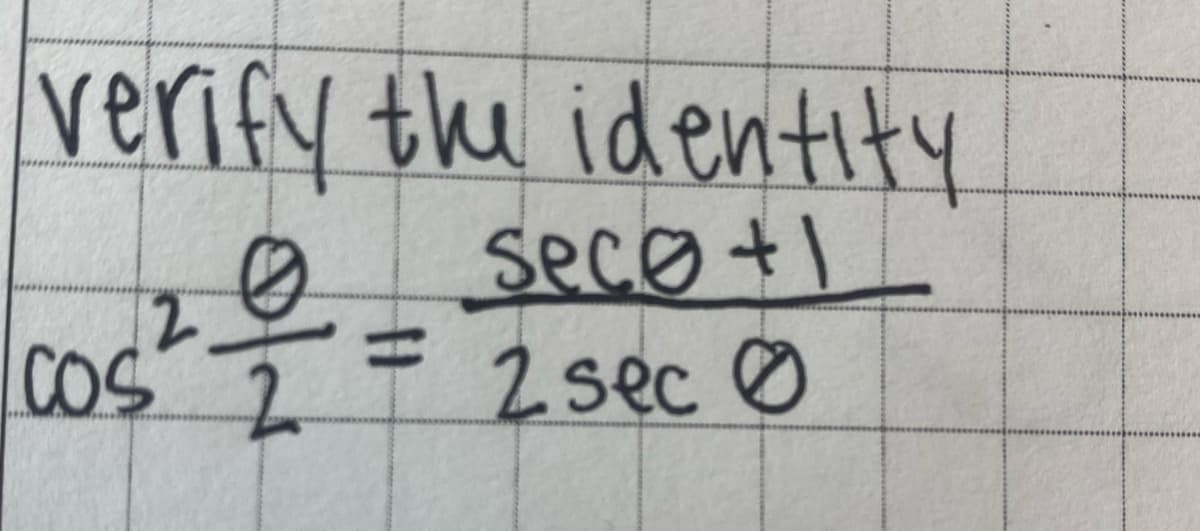 verify the identity
cos² θ/2 = secθ + 1 / 2 sec θ